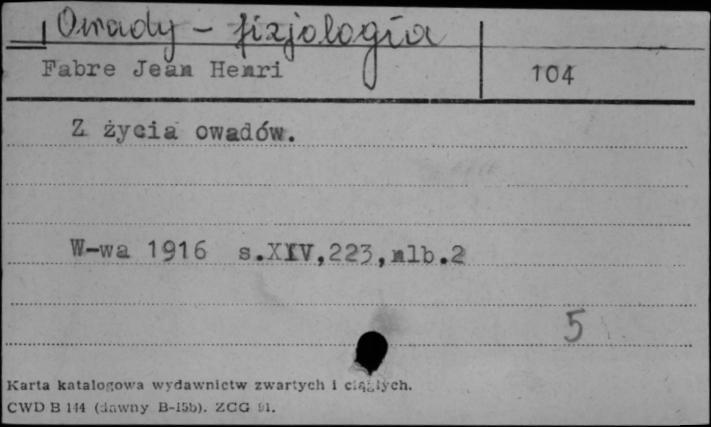 Owady - fizjologia
Fabre Jean Henri 104
Z życia owadów.
W-wa 1916 s.XIV,223,nlb.2
5
Karta katalogowa wydawnictw zwartych i ciągłych.
CWD B 144 (dawny B-15b). ZCG 91.